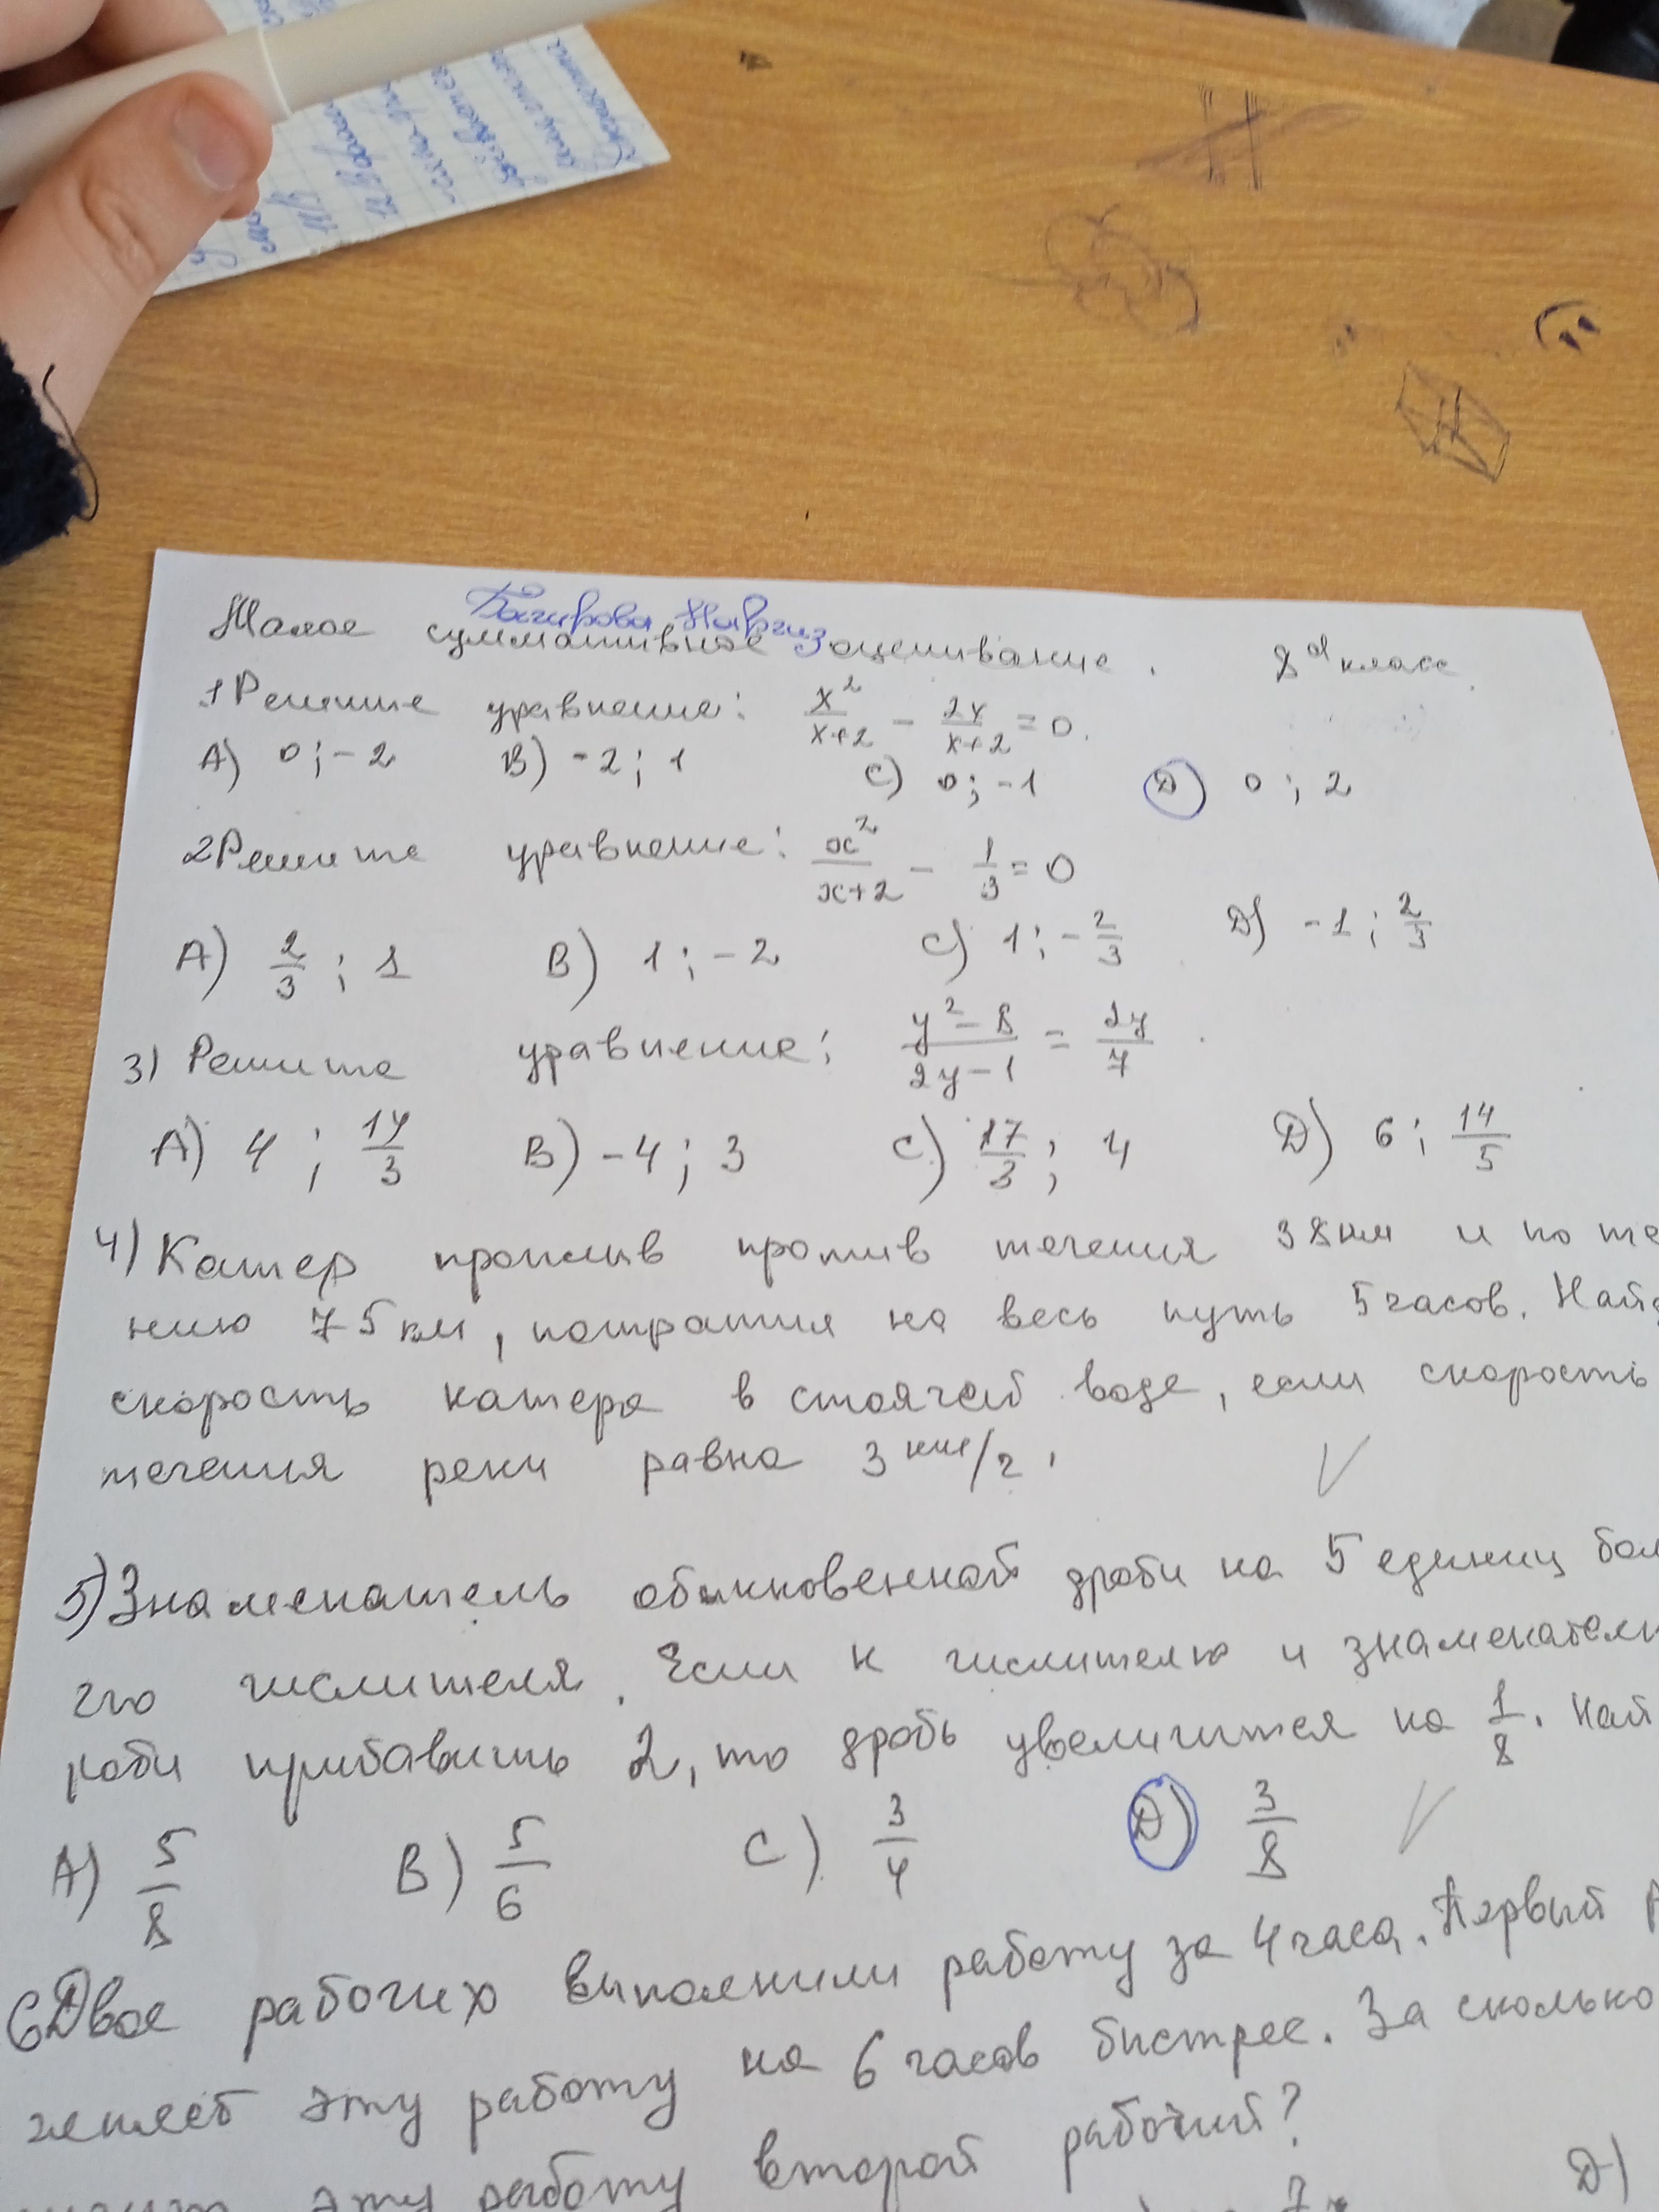 Багирова Наргиз
Малое суммативное оценивание. 8ᵈ класс.
1 Решите уравнение: x²/x+2 - 2x/x+2 = 0.
A) 0; -2 B) -2; 1 C) 0; -1 D) 0; 2
2 Решите уравнение: x²/x+2 - 1/3 = 0
A) 2/3; 1 B) 1; -2 C) 1; -2/3 D) -1; 2/3
3) Решите уравнение: y²-8/2y-1 = 2y/7
A) 4; 14/3 B) -4; 3 C) 17/3; 4 D) 6; 14/5
4) Катер проплыв против течения 38км и по те
нию 75км, потратил на весь путь 5 часов. Найд
скорость катера в стоячей воде, если скорость
течения реки равна 3 км/г.
5) Знаменатель обыкновенной дроби на 5 единиц бол
его числителя. Если к числителю и знаменател
роби прибавить 2, то дробь увеличится на 1/8. Най
A) 5/8 B) 5/6 C) 3/4 D) 3/8
6 Двое рабочих выполнили работу за 4 часа. Первый
эту работу на 6 часов быстрее. За сколько
эту работу второй рабочий?
D)